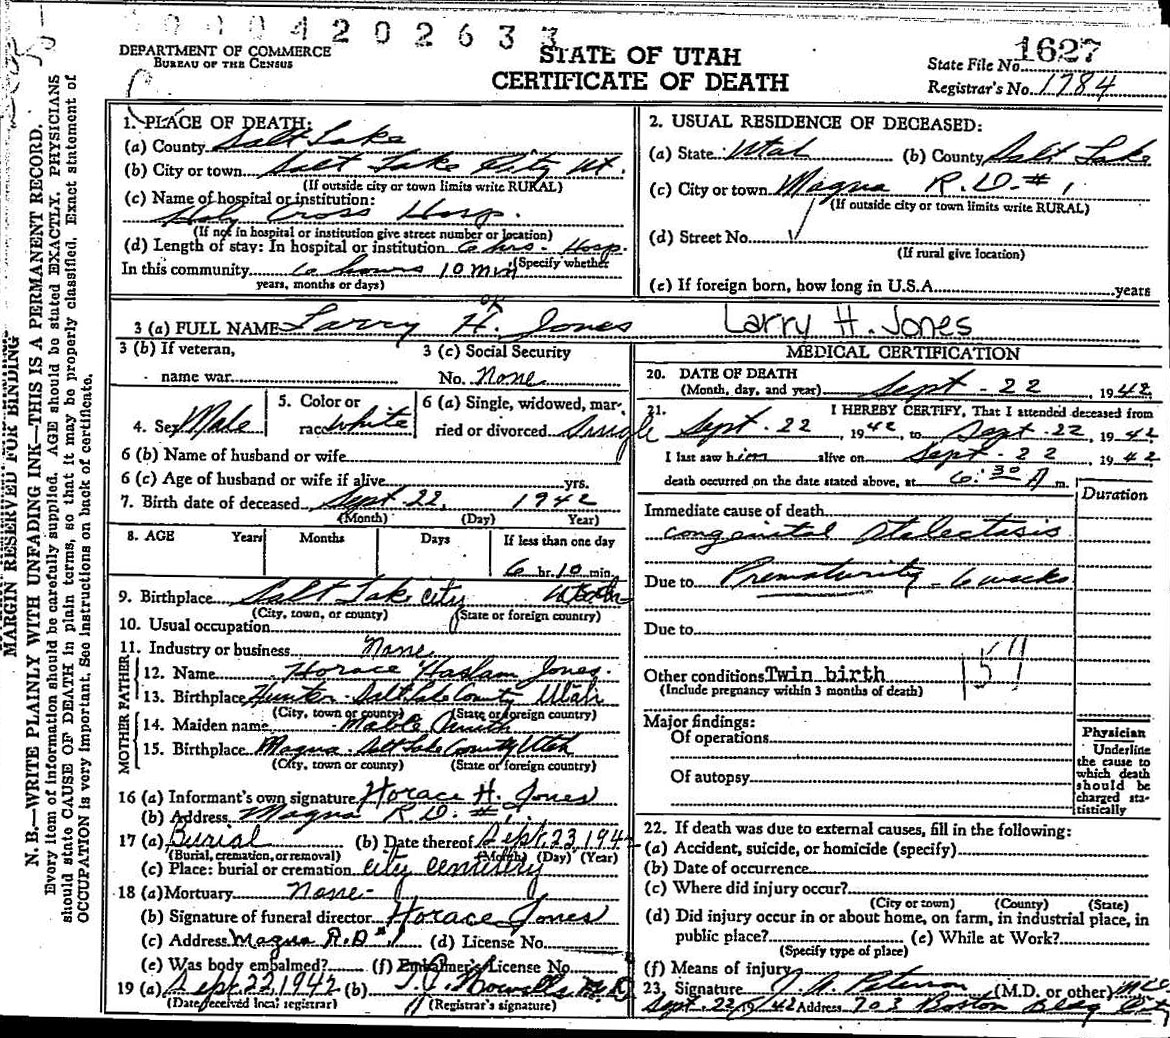 0004202633
DEPARTMENT OF COMMERCE
BUREAU OF THE CENSUS
STATE OF UTAH
CERTIFICATE OF DEATH
State File No. 1627
Registrar's No. 1784
MARGIN RESERVED FOR BINDING
N. B.—WRITE PLAINLY WITH UNFADING INK—THIS IS A PERMANENT RECORD.
Every item of information should be carefully supplied. AGE should be stated EXACTLY. PHYSICIANS
should state CAUSE OF DEATH in plain terms, so that it may be properly classified. Exact statement of
OCCUPATION is very important. See instructions on back of certificate.
1. PLACE OF DEATH:
(a) County Salt Lake
(b) City or town Salt Lake City Ut.
(If outside city or town limits write RURAL)
(c) Name of hospital or institution:
Holy Cross Hosp.
(If not in hospital or institution give street number or location)
(d) Length of stay: In hospital or institution 6 hrs. Hosp.
(Specify whether
In this community 6 hours 10 min
years, months or days)
2. USUAL RESIDENCE OF DECEASED:
(a) State Utah (b) County Salt Lake
(c) City or town Magna R.D. # 1
(If outside city or town limits write RURAL)
(d) Street No.
(If rural give location)
(e) If foreign born, how long in U.S.A. years
3 (a) FULL NAME Larry H. Jones Larry H. Jones
3 (b) If veteran,
name war
3 (c) Social Security
No. None
4. Sex Male
5. Color or
race white
6 (a) Single, widowed, mar-
ried or divorced Single
6 (b) Name of husband or wife
6 (c) Age of husband or wife if alive yrs.
7. Birth date of deceased Sept. 22, 1942
(Month) (Day) Year)
8. AGE Years Months Days If less than one day
6 hr. 10 min.
9. Birthplace Salt Lake City Utah
(City, town, or county) (State or foreign country)
10. Usual occupation
11. Industry or business None
FATHER
12. Name Horace Haslam Jones
13. Birthplace Hunter - Salt Lake County Utah
(City, town or county) (State or foreign country)
MOTHER
14. Maiden name Mable Smith
15. Birthplace Magna - Salt Lake County Utah
(City, town or county) (State or foreign country)
16 (a) Informant's own signature Horace H. Jones
(b) Address Magna R.D. # 1.
17 (a) Burial (b) Date thereof Sept. 23, 194
(Burial, cremation, or removal) (Month) (Day) (Year)
(c) Place: burial or cremation City Cemetery
18 (a) Mortuary None
(b) Signature of funeral director Horace Jones
(c) Address Magna R.D #1 (d) License No.
(e) Was body embalmed? (f) Embalmer's License No.
19 (a) Sept. 23, 1942 (b)
(Date received local registrar) (Registrar's signature)
MEDICAL CERTIFICATION
20. DATE OF DEATH
(Month, day, and year) Sept - 22, 1942
21. I HEREBY CERTIFY, That I attended deceased from
Sept. 22 1942, to Sept. 22, 1942
I last saw him alive on Sept - 22 1942
death occurred on the date stated above, at 6:30 A m.
Duration
Immediate cause of death
congenital atelectasis
Due to Prematurity 6 weeks
Due to
Other conditions Twin birth
(Include pregnancy within 3 months of death)
Major findings:
Of operations
Of autopsy
Physician
Underline
the cause to
which death
should be
charged sta-
tistically
22. If death was due to external causes, fill in the following:
(a) Accident, suicide, or homicide (specify)
(b) Date of occurrence
(c) Where did injury occur?
(City or town) (County) (State)
(d) Did injury occur in or about home, on farm, in industrial place, in
public place? (e) While at Work?
(Specify type of place)
(f) Means of injury
23. Signature Peterson (M.D. or other) M.D.
Sept. 22/42 Address 703 Boston Bldg City